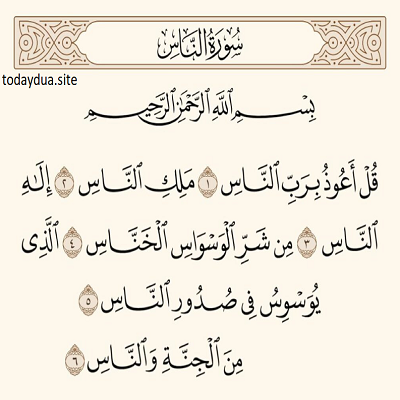 سُورَةُ النَّاسِ
todaydua.site
بِسْمِ ٱللَّهِ ٱلرَّحْمَٰنِ ٱلرَّحِيمِ
قُلْ أَعُوذُ بِرَبِّ ٱلنَّاسِ ١ مَلِكِ ٱلنَّاسِ ٢ إِلَٰهِ
ٱلنَّاسِ ٣ مِن شَرِّ ٱلْوَسْوَاسِ ٱلْخَنَّاسِ ٤ ٱلَّذِى
يُوَسْوِسُ فِى صُدُورِ ٱلنَّاسِ ٥
مِنَ ٱلْجِنَّةِ وَٱلنَّاسِ ٦